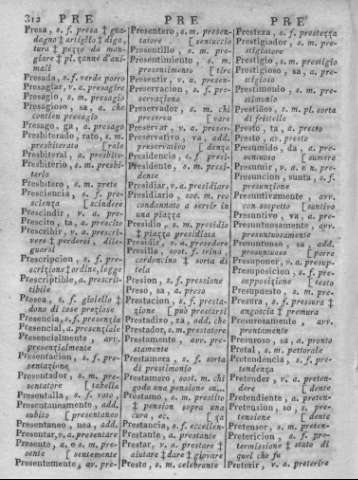 312 PRE PRE PRE
Presa, s. f. presa ‡ gua-
dagno ‡ artiglio ‡ diga,
tura ‡ pezzo da man-
giare ‡ pl. zanne d'ani-
mali
Presada, s. f. verde porro
Presagiar, v. a. presagire
Presagio, s. m. presagio
Presagioso, sa, a. che
contien presagio
Presago, ga, a. presago
Presbiterado, rato, s. m.
presbiterato [rale
Presbiteral, a. presbite-
Presbiterio, s. m. presbi-
terio
Presbitero, s. m. prete
Presciencia, s. f. pre-
scienza [scindere
Prescindir, v. a. pre-
Prescito, ta, a. prescito
Prescribir, v. a. prescri-
vere ‡ perdersi, dile-
guarsi
Prescripcion, s. f. pre-
scrizione ‡ ordine, legge
Prescriptible, a. prescrit-
tibile
Presea, s. f. gioiello ‡
dono di cose preziose
Presencia, s. f. presenza
Presencial, a. presenziale
Presencialmente, av.
presenzialmente
Presentacion, s. f. pre-
sentazione
Presentador, s. m. pre-
sentatore [tabella
Presentalla, s. f. voto,
Presentaneamente, add.
subito [presentaneo
Presentaneo, nea, add.
Presentar, v. a. presentare
Presente, a. e s. m. pre-
sente [sentemente
Presentemente, av. pre-
Presentero, s. m. presen-
tatore [sentuccio
Presentillo, s. m. pre-
Presentimiento, s. m.
presentimento [tire
Presentir, v. a. presen-
Preservacion, s. f. pre-
servazione
Preservador, s. m. chi
preserva [vare
Preservar, v. a. preser-
Preservativo, va, add.
preservativo [denza
Presidencia, s. f. presi-
Presidente, s. m. presi-
dente
Presidiar, v. a. presidiare
Presidiario, sost. m. reo
condannato a servir in
una piazza
Presidio, s. m. presidio
‡ piazza presidiosa
Presidir, v. a. presedere
Presilla, sost. f. trina
cordoncino ‡ sorta di
tela
Presion, s. f. pressione
Preso, sa, a. preso
Prestacion, s. f. presta-
zione [può prestarsi
Prestadizo, za, add. che
Prestador, s. m. prestatore
Prestamente, avv. pre-
stamente
Prestamera, s. f. sorta
di prestimonio
Prestamero, sost. m. chi
gode una pensione su...
Prestamo, s. m. prestito
‡ pension sopra una
cura, ec. [za
Prestancia, s. f. eccellen-
Prestante, a. prestante
Prestar, v. a. prestare ‡
aiutare ‡ dare ‡ giovare
Preste, s. m. celebrante
Presteza, s. f. prestezza
Prestigiador, s. m. pre-
stigiatore
Prestigio, s. m. prestigio
Prestigioso, sa, a. pre-
stigioso
Prestimonio, s. m. pre-
stimonio
Prestiños, s. m. pl. sorta
di fristelle
Presto, ta, a. presto
Presto, av. presto
Presumido, da, a. pre-
suntuoso [sumere
Presumir, v. a. e n. pre-
Presuncion, sunta, s. f.
presunzione
Presuntivamente, avv.
con sospetto [suntivo
Presuntivo, va, a. pre-
Presuntuosamente, avv.
presuntuosamente
Presuntuoso, sa, add.
presuntuoso [porre
Presuponer, v. a. presup-
Presuposicion, s. f. pre-
supposizione [testo
Presupuesto, s. m. pre-
Presura, s. f. pressura ‡
angoscia ‡ premura
Presurosamente, avv.
prontamente
Presuroso, sa, a. pronto
Pretal, s. m. pettorale
Pretendencia, s. f. pre-
tendenza
Pretender, v. a. preten-
dere [dente
Pretendiente, a. preten-
Pretension, so, s. pre-
tensione [dente
Pretensor, s. m. preten-
Pretericion, s. f. pre-
termissione ‡ stato di
quel che fu
Preterir, v. a. preterire